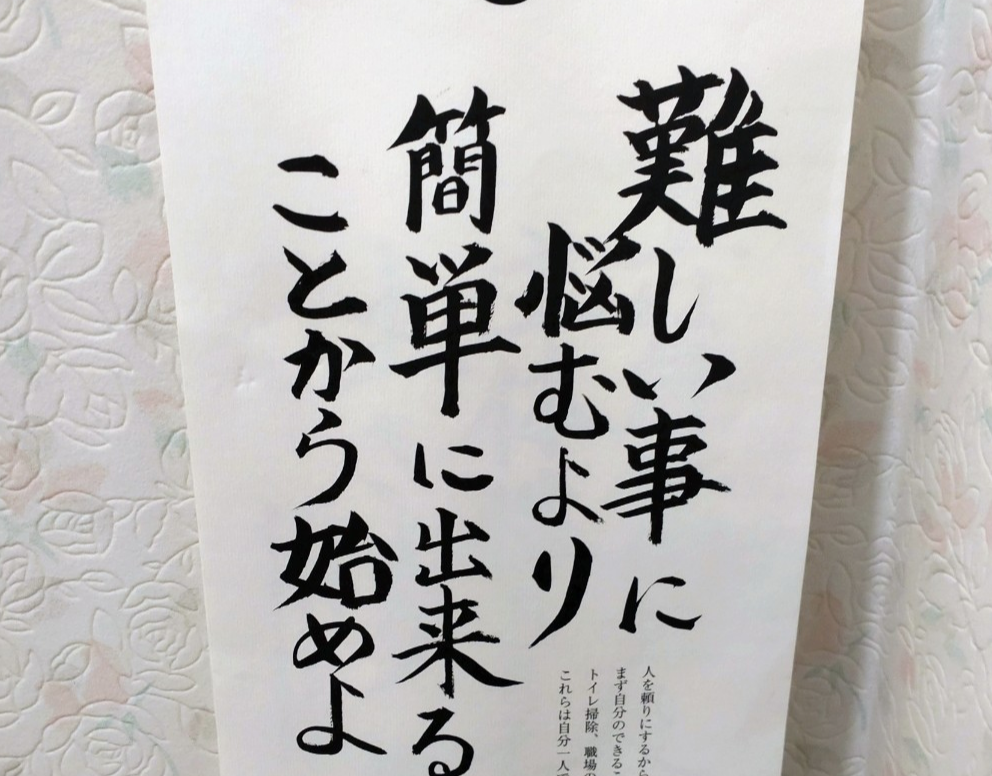 難しい事に
悩むより
簡単に出来る
ことから始めよ
人を頼りにするから
まず自分のできるこ
トイレ掃除、職場の
これらは自分一人で